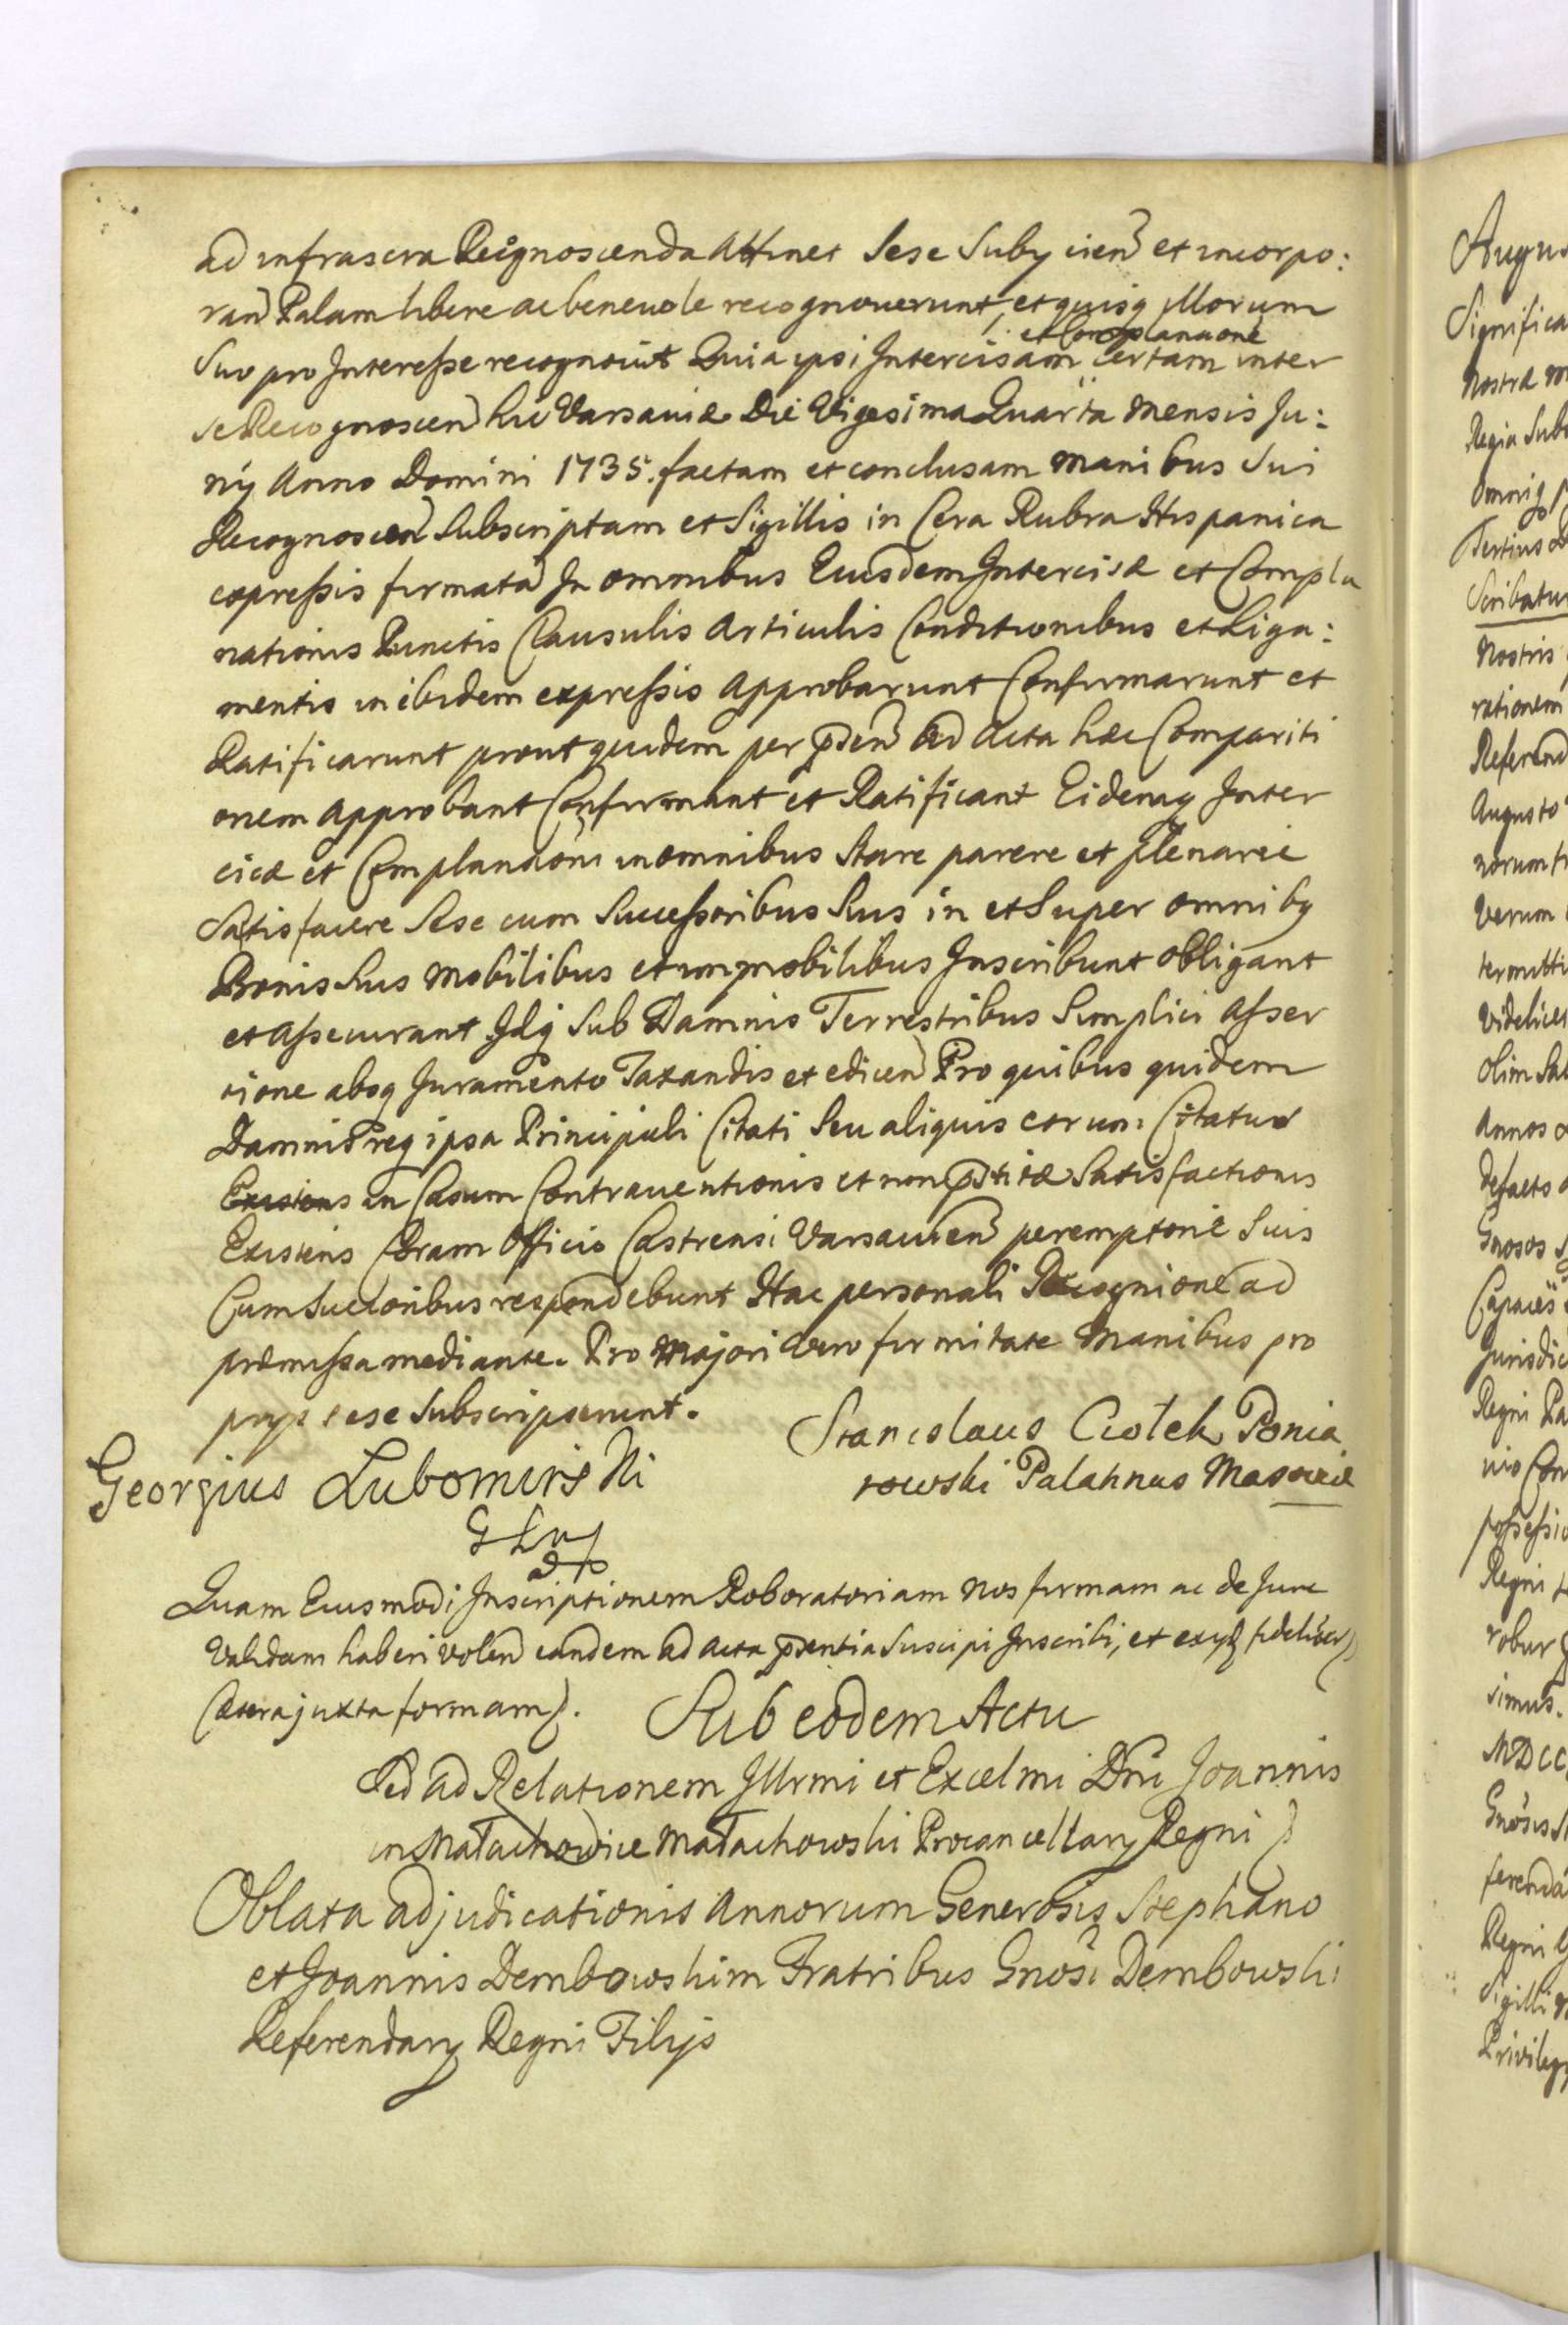 ad infrascra Recognoscenda Attinet Sese Subijcien et incorpo:
ran Palam libere ac benevole recognoverunt, et quisq illorum
et Complanaone
Suo pro Interesse recognovit Quia ipsi Intercisam Certam inter
se Recognoscen hic Varsaviæ Die Vigesima Quarta Mensis Ju:
nij Anno Domini 1735. factam et conclusam Manibus Sui
Recognoscen Subscriptam et Sigillis in Cera Rubra Hispanica
expressis firmatã In omnibus Eiusdem Intercisæ et Compla
nationis Punctis Clausulis Articulis Conditionibus et Liga:
mentis in ibidem expressis Approbarunt Confirmarunt et
Ratificarunt prout quidem per p̃sen ad Acta hæc Compariti
onem Approbant Confirmant et Ratificant Eidemq Inter
cisæ et Complanaõni in omnibus Stare parere et plenarie
Satisfacere Sese cum Successoribus Suis in et Super omnibq
Bonis Suis Mobilibus et immobilibus Inscribunt Obligant
et Assecurant Idq Sub Damnis Terrestribus Simplici Asser
tione absq Juramento Taxandis et edicen Pro quibus quidem
Damnis req ipsa Principali Citati Seu aliquis eorum Citatus
Existens in Casum Contraventionis et non p̃stitæ Satisfactionis
Existens Coram Officio Castrensi Varsavien peremptorie Suis
Cum Suctoribus respondebunt Hac personali Recognione ad
præmissa mediante. Pro Majori vero firmitate Manibus pro
prijs sese Subscripserunt.
Stanislaus Ciołek Ponia
Georgius Lubomirski
towski Palatinus Masoviæ
Quam Eiusmodi Inscriptionem Roboratoriam Nos firmam ac de Jure
Validam haberi volen eandem ad Acta p̃sentia Suscipi Inscribi, et
Cætera juxta formam.
Sub eodem Actu
Sed ad Relationem Illrmi et Excelmi Dni Joannis
in Małachowice Małachowski Procancellarij Regni
Oblata adjudicationis Annorum Generosis Stephano
et Joannis Dembowskim Fratribus Gnosi Dembowski
Referendarij Regni Filijs
Augus
Significa
Nostræ
Regia Sub
omniq
Tertius
Scribatur
Nostris
rationem
Referend
Augusto
norum
Verum
termitti
Videlicet
Olim
Annos
Defacto
Gnosos
Capaces
Jurisdic
Regni Pa
nis Con
possessio
Regni
robur
simus.
MDCC
Gnosis
ferenda
Regni
Sigilli
Privileg